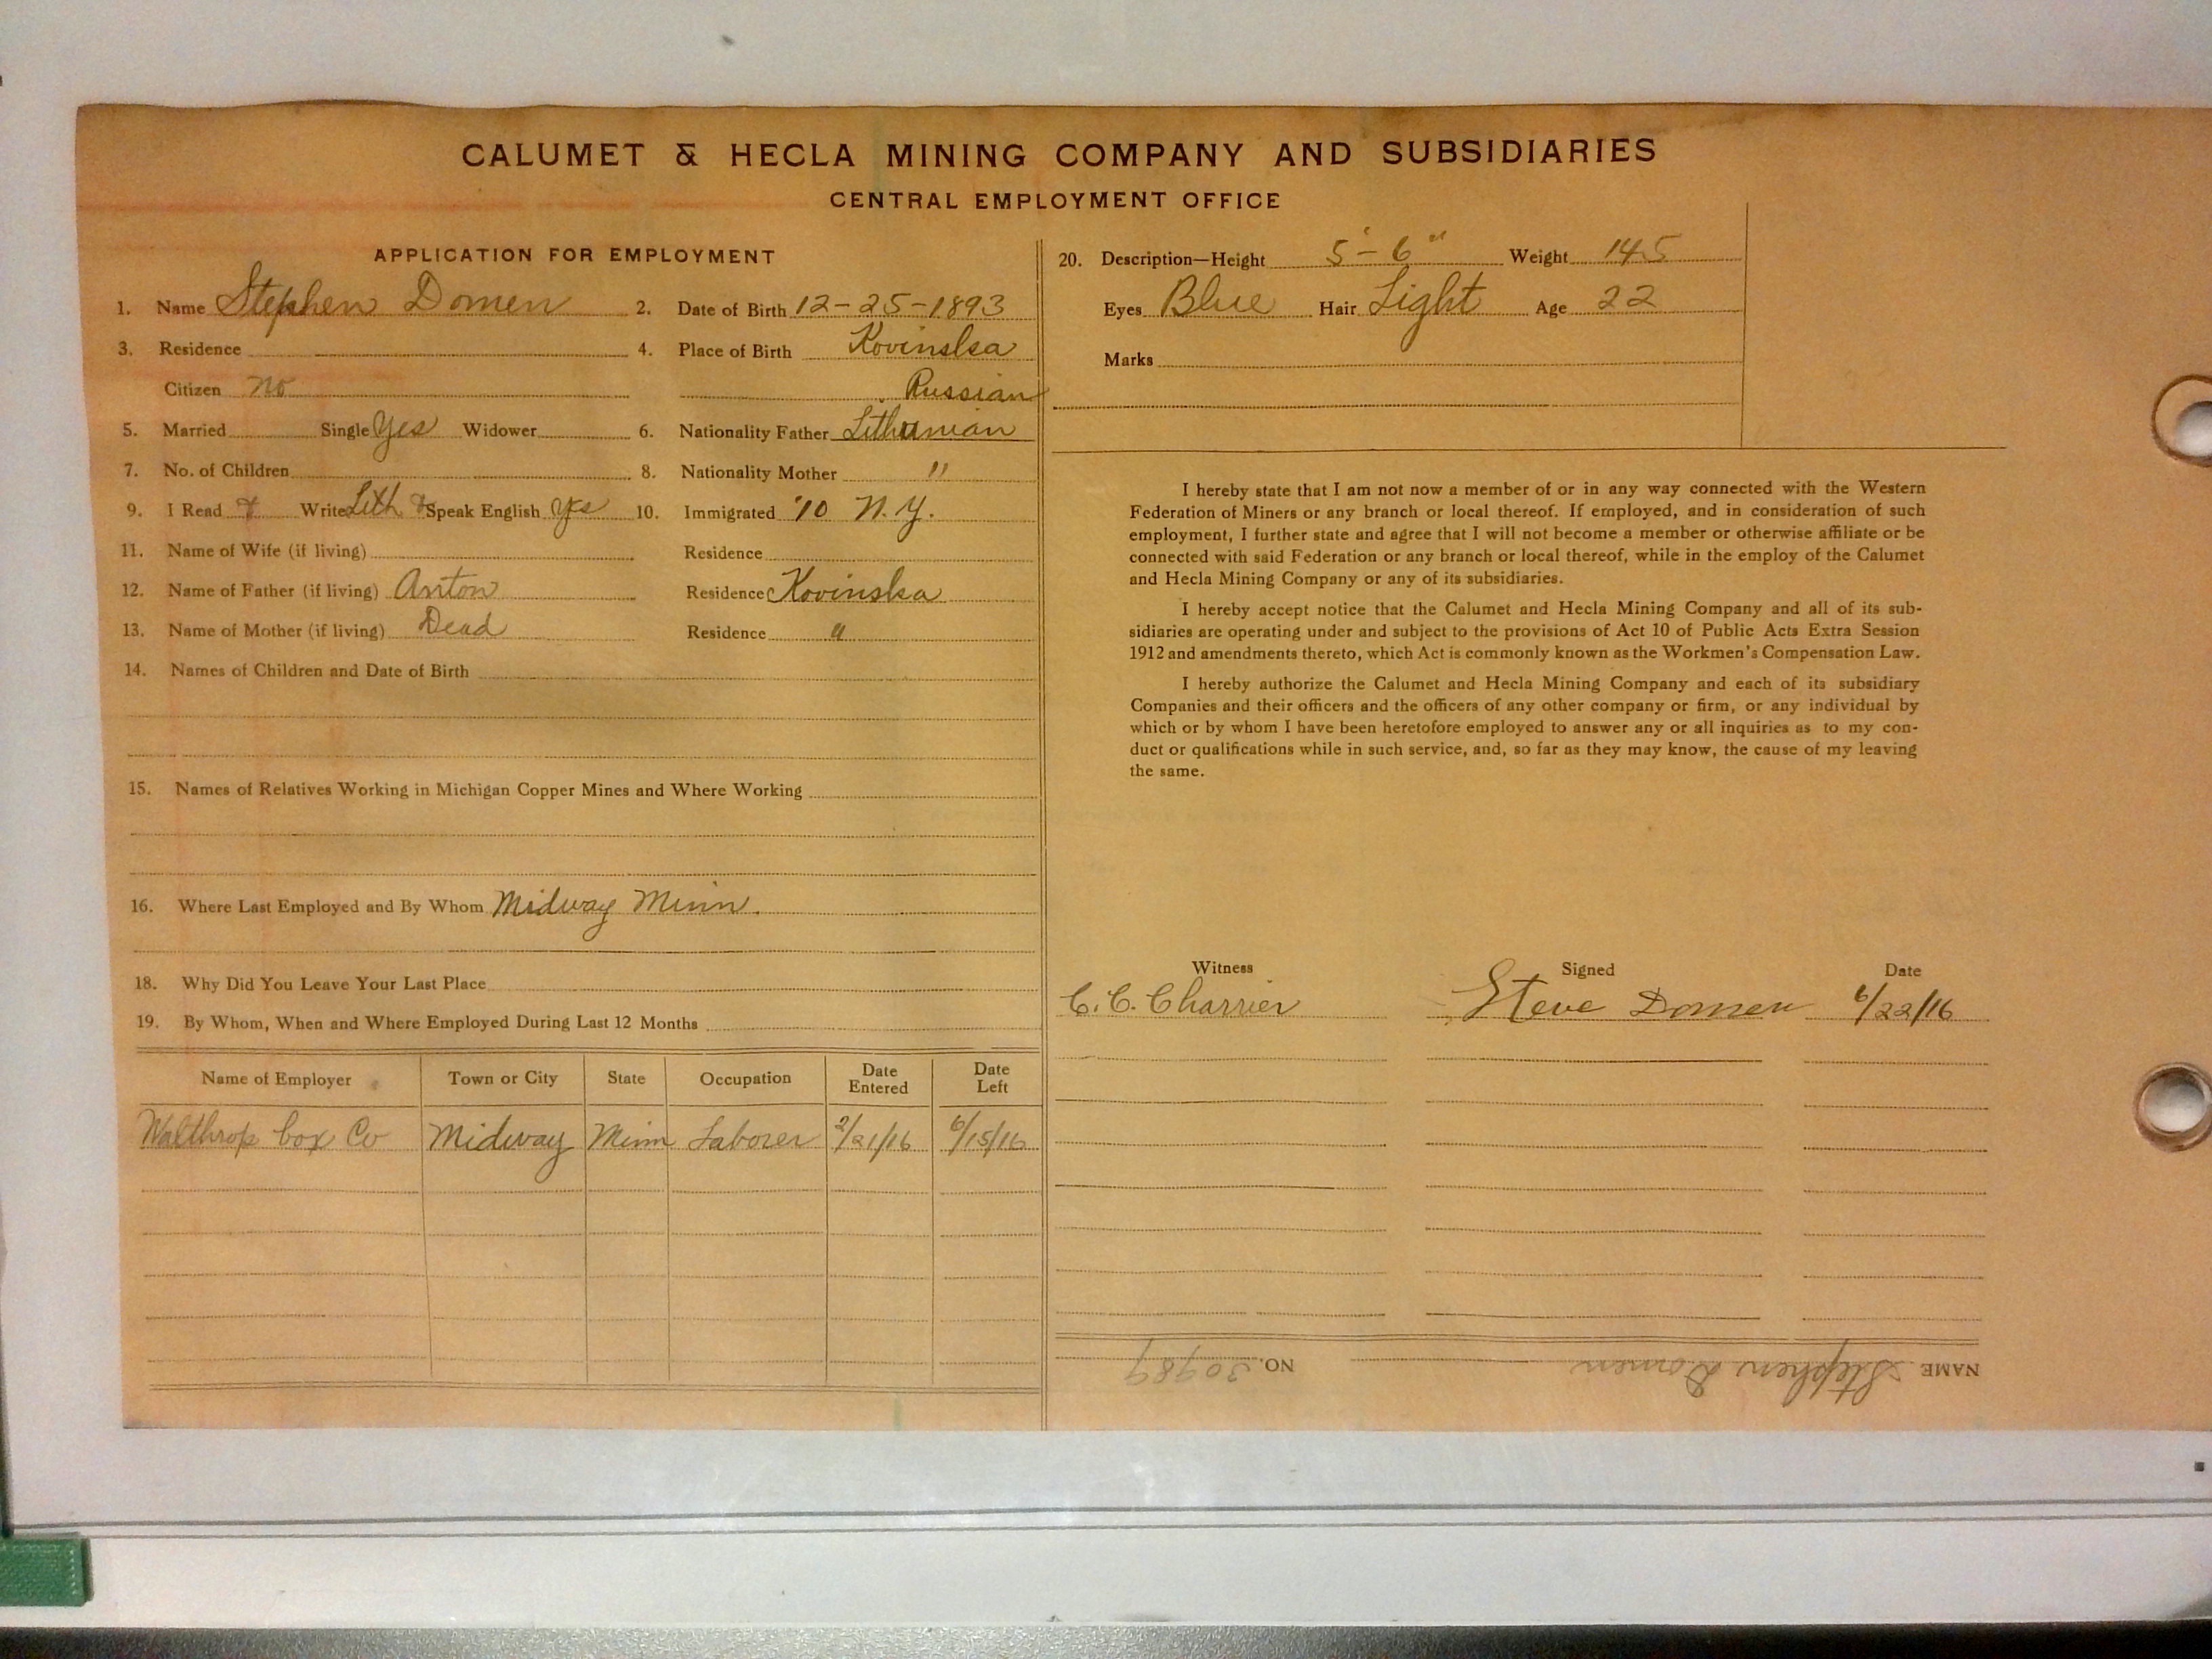 CALUMET & HECLA MINING COMPANY AND SUBSIDIARIES
CENTRAL EMPLOYMENT OFFICE
APPLICATION FOR EMPLOYMENT
1. Name Stephen Domen 2. Date of Birth 12-25-1893
3. Residence 4. Place of Birth Kovinska
Citizen No Russian
5. Married Single Yes Widower 6. Nationality Father Lithunian
7. No. of Children 8. Nationality Mother "
9. I Read & Write Lith & Speak English Yes 10. Immigrated '10 N.Y.
11. Name of Wife (if living) Residence
12. Name of Father (if living) Anton Residence Kovinska
13. Name of Mother (if living) Dead Residence "
14. Names of Children and Date of Birth
15. Names of Relatives Working in Michigan Copper Mines and Where Working
16. Where Last Employed and By Whom Midway Minn.
18. Why Did You Leave Your Last Place
19. By Whom, When and Where Employed During Last 12 Months
Name of Employer Town or City State Occupation Date Entered Date Left
Walthrop box Co Midway Minn Laborer 2/21/16 6/15/16
20. Description—Height 5'-6" Weight 145
Eyes Blue Hair Light Age 22
Marks
I hereby state that I am not now a member of or in any way connected with the Western
Federation of Miners or any branch or local thereof. If employed, and in consideration of such
employment, I further state and agree that I will not become a member or otherwise affiliate or be
connected with said Federation or any branch or local thereof, while in the employ of the Calumet
and Hecla Mining Company or any of its subsidiaries.
I hereby accept notice that the Calumet and Hecla Mining Company and all of its sub-
sidiaries are operating under and subject to the provisions of Act 10 of Public Acts Extra Session
1912 and amendments thereto, which Act is commonly known as the Workmen's Compensation Law.
I hereby authorize the Calumet and Hecla Mining Company and each of its subsidiary
Companies and their officers and the officers of any other company or firm, or any individual by
which or by whom I have been heretofore employed to answer any or all inquiries as to my con-
duct or qualifications while in such service, and, so far as they may know, the cause of my leaving
the same.
Witness Signed Date
C. C. Charrier Steve Domen 6/22/16
NAME Stephen Domen NO. 30989